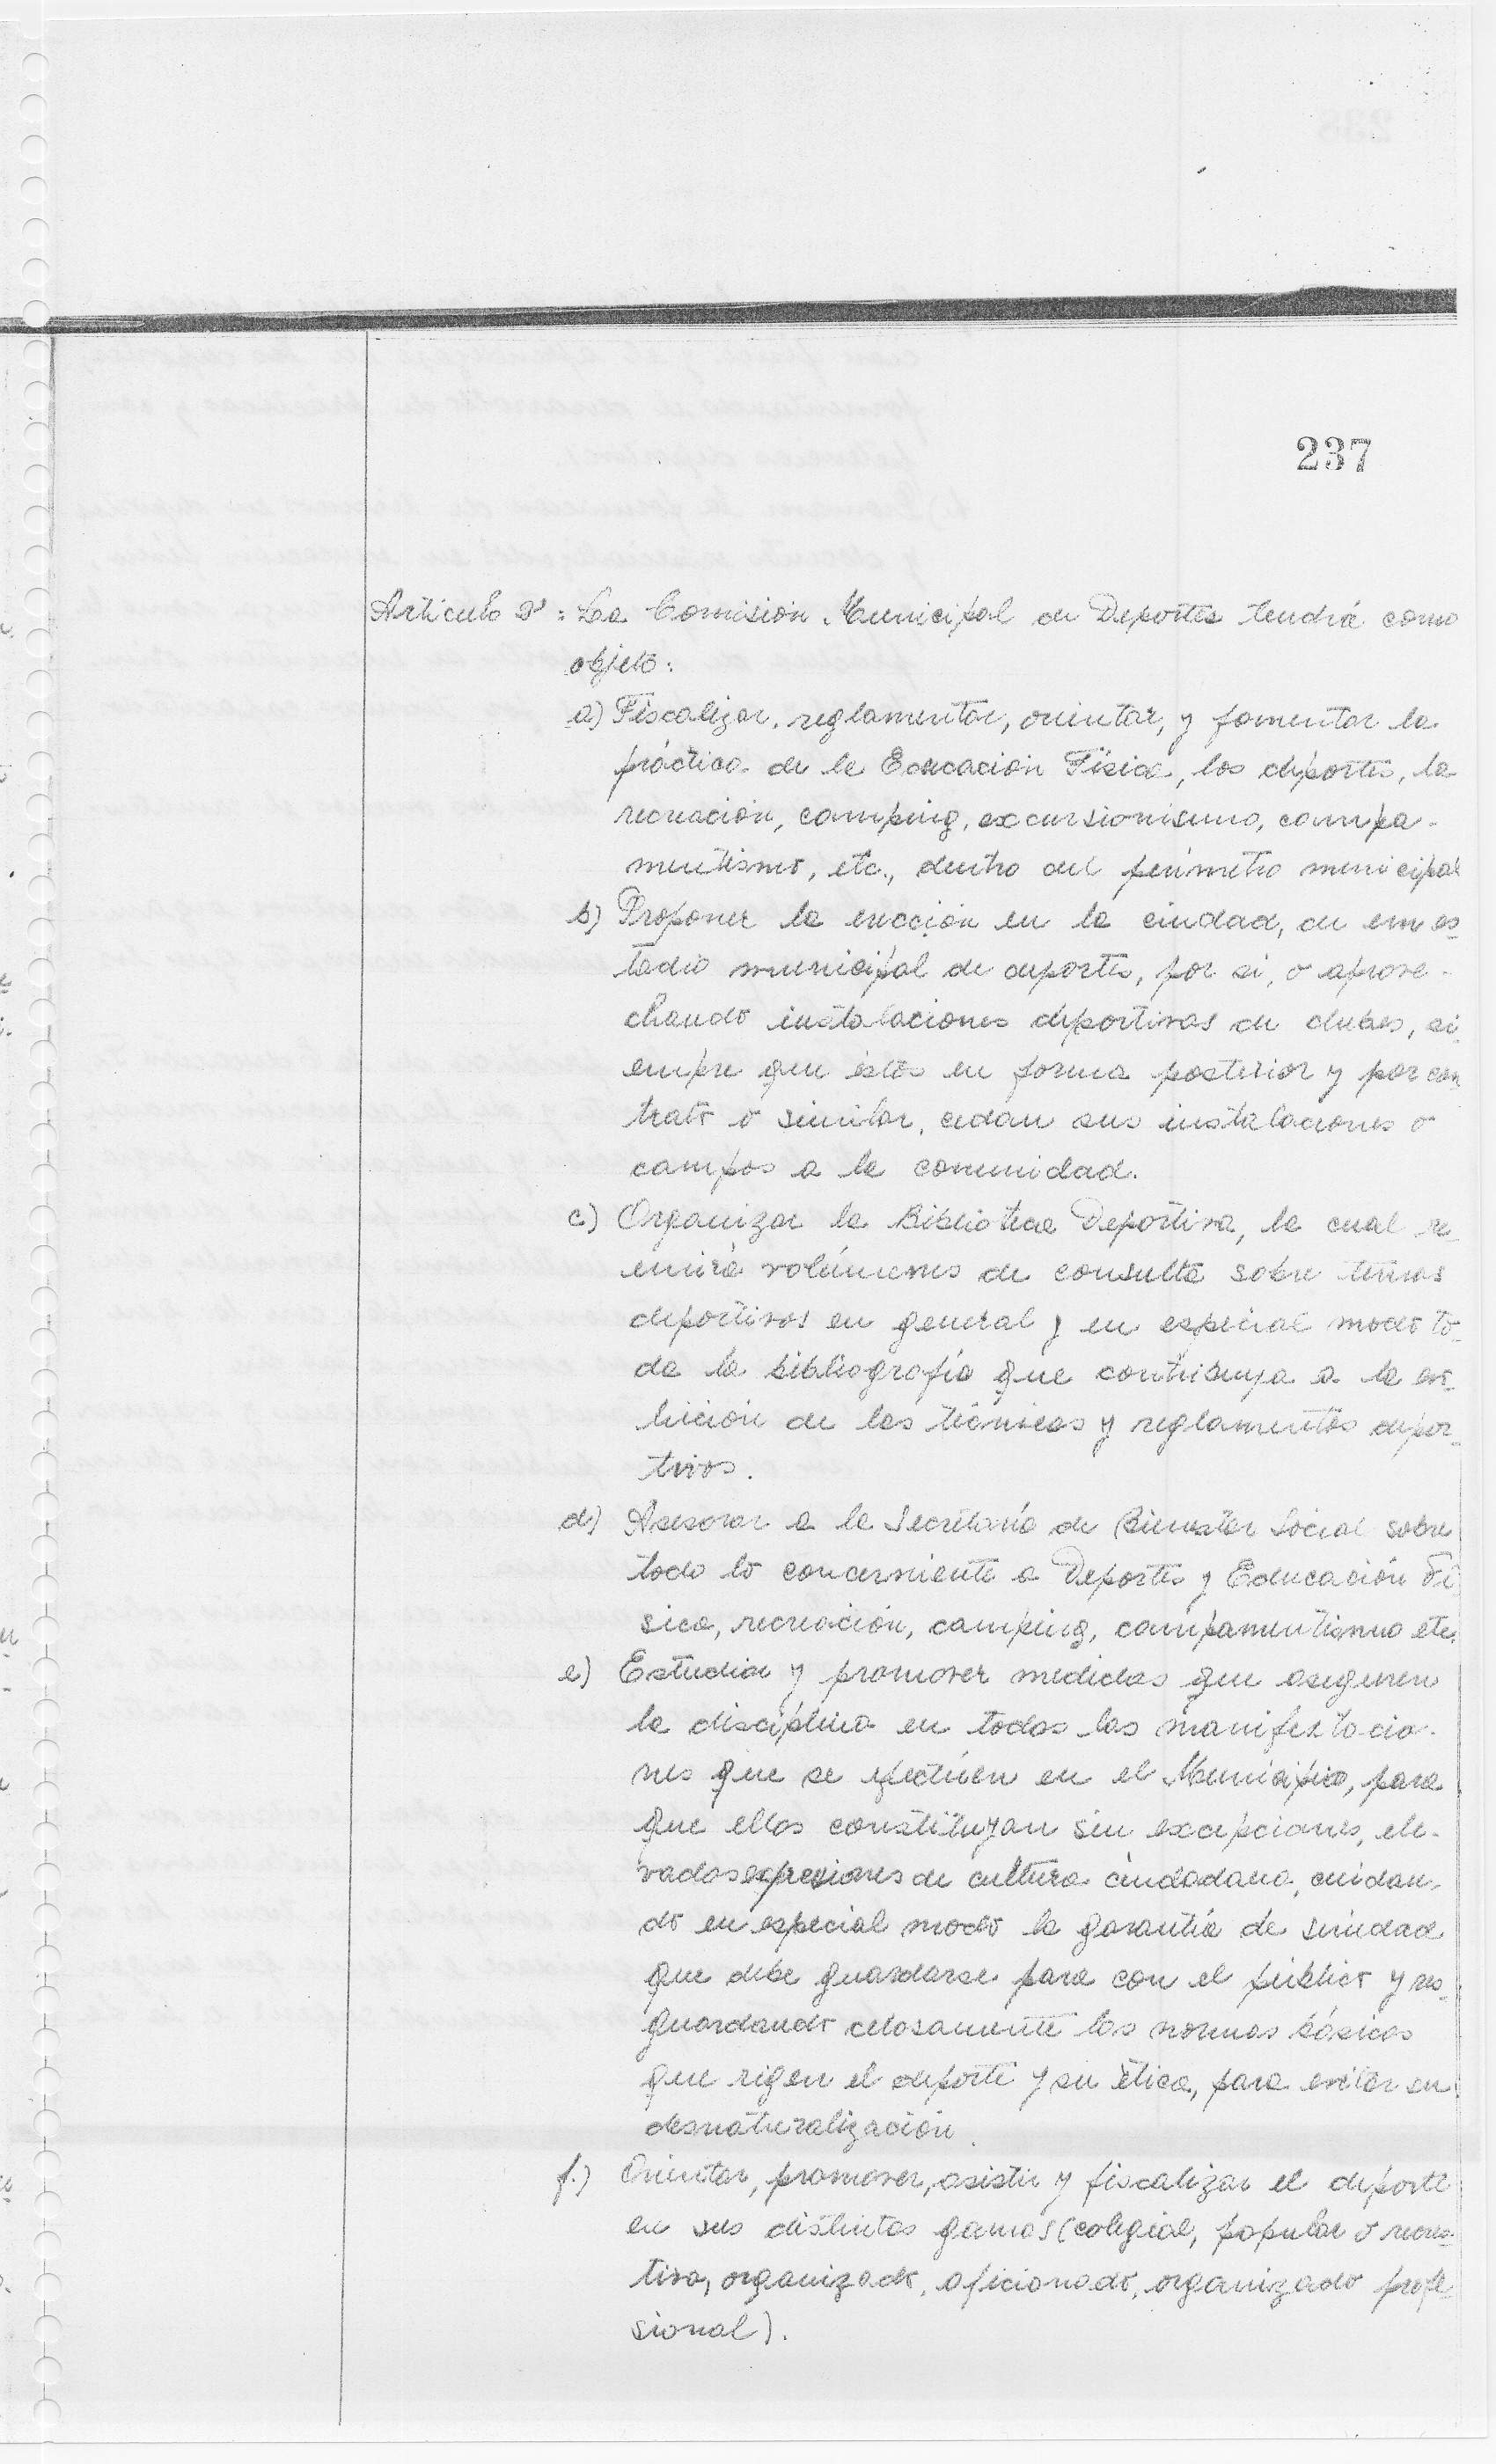 237
Articulo 2º: La Comisión Municipal de Deportes tendrá como
objeto:
a) Fiscalizar, reglamentar, orientar, y fomentar la
práctica de la Educación Física, los deportes, la
recreación, camping, excursionismo, campa-
mentismo, etc., dentro del perímetro municipal
b) Proponer la erección en la ciudad, de un es-
tadio municipal de deportes, por si, o aprove-
chando instalaciones deportivas de clubes, si-
empre que éstos en forma posterior y por con
trato o similar, cedan sus instalaciones o
campos a la comunidad.
c) Organizar la Biblioteca Deportiva, la cual re-
unirá volúmenes de consulta sobre temas
deportivos en general y en especial modo to-
da la bibliografía que contribuya a la evo-
lución de las técnicas y reglamentos depor-
tivos.
d) Asesorar a la Secretaría de Bienestar Social sobre
todo lo concerniente a Deportes y Educación Fí
sica, recreación, camping, campamentismo etc.
e) Estudiar y promover medidas que aseguren
la disciplina en todas las manifestacio-
nes que se efectúen en el Municipio, para
que ellas constituyan sin excepciones, ele-
vadas expresiones de cultura ciudadana, cuidan-
do en especial modo la garantía de seriedad
que debe guardarse para con el público y res-
guardando celosamente las normas básicas
que rigen el deporte y su ética, para evitar su
desnaturalización.
f.) Orientar, promover, asistir y fiscalizar el deporte
en sus distintas gamas (colegial, popular o recrea-
tiva, organizado, aficionado, organizado profe-
sional).